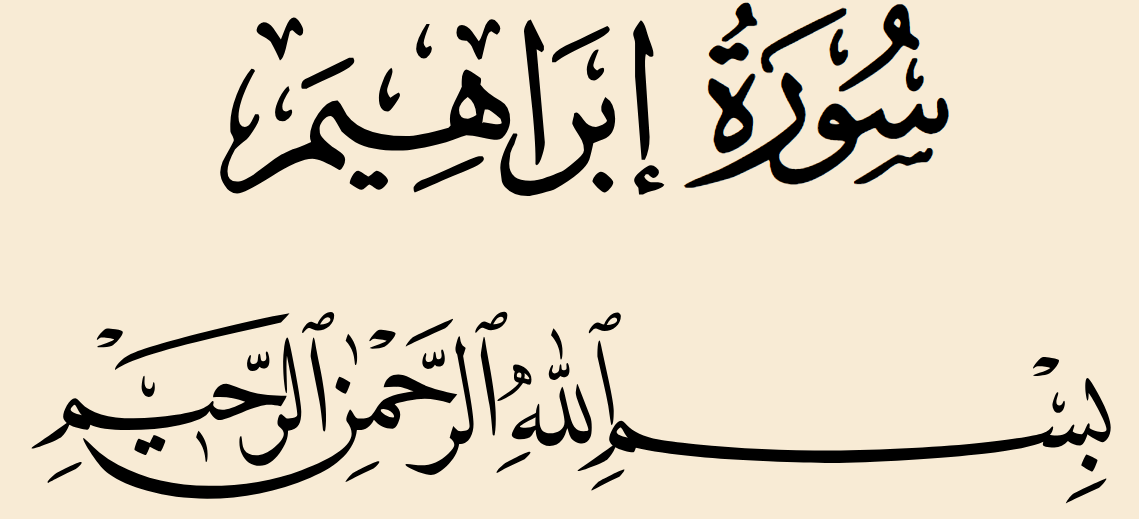 سُورَةُ إِبْرَاهِيم
بِسْمِ ٱللَّهِ ٱلرَّحْمَٰنِ ٱلرَّحِيمِ